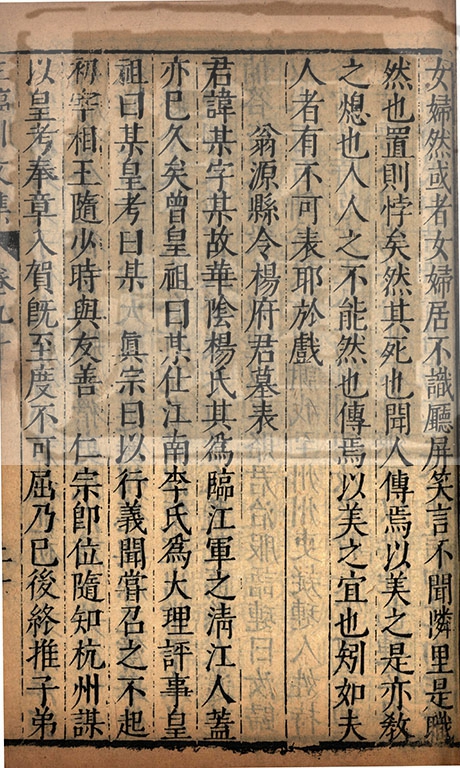 女婦然或者女婦居不識廳屏笑言不聞隣里是職
然也置則悖矣然其死也聞人傳焉以美之是亦教
之熄也人人之不能然也傳焉以美之宜也矧如夫
人者有不可表耶於戲
翁源縣令楊府君墓表
君諱某字某故華陰楊氏其爲臨江軍之淸江人蓋
亦巳久矣曾皇祖曰某仕江南李氏爲大理評事皇
祖曰某皇考曰某 眞宗曰以行義聞嘗召之不起
初宰相王隨少時與友善 仁宗卽位隨知杭州謀
以皇考奉章入賀旣至度不可屈乃巳後終推子弟
王臨川文集 卷九十